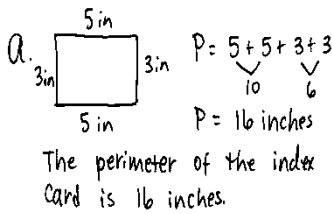 a.
5 in
3in
3in
5 in
P= 5+5+3+3
10 6
P= 16 inches
The perimeter of the index
Card is 16 inches.